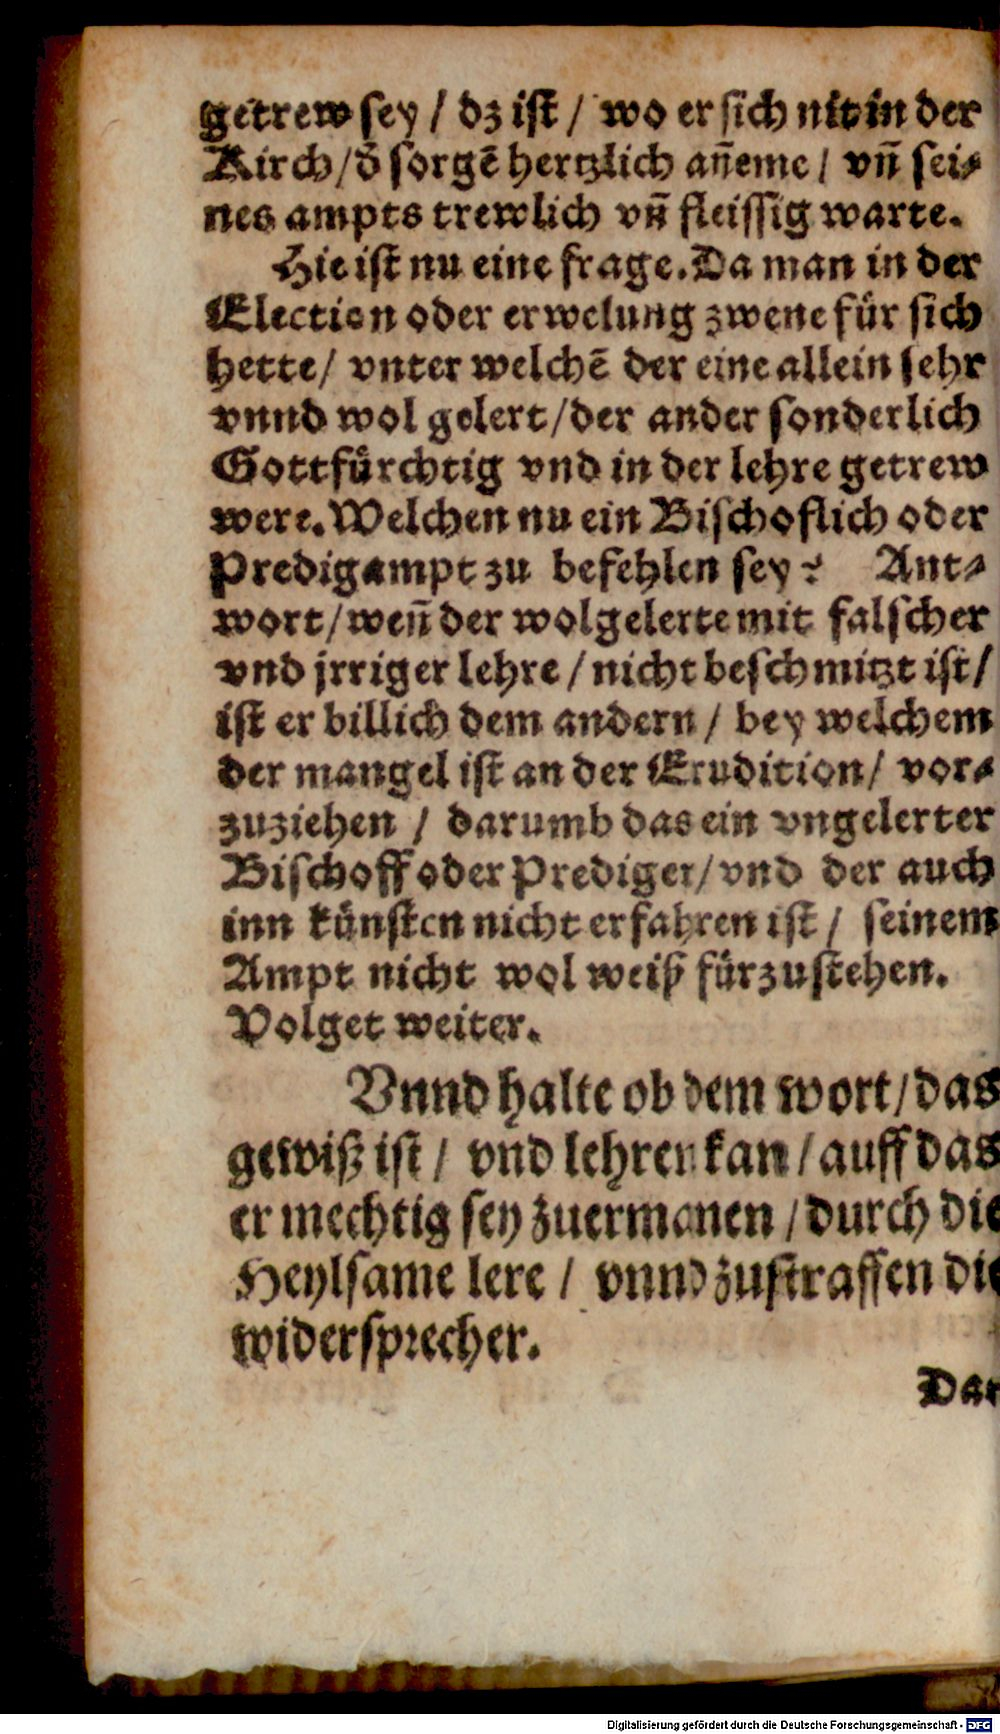 getrew sey / dz ist / wo er sich nit in der
Kirch / d̄ sorgē hertzlich an̄eme / vn̄ sei⸗
nes ampts trewlich vn̄ fleissig warte.
Hie ist nu eine frage. Da man in der
Election oder erwelung zwene für sich
hette / vnter welchē der eine allein sehr
vnnd wol gelert / der ander sonderlich
Gottfürchtig vnd in der lehre getrew
were. Welchen nu ein Bischoflich oder
Predigampt zu befehlen sey? Ant⸗
wort / wen̄ der wolgelerte mit falscher
vnd jrriger lehre / nicht beschmitzt ist /
ist er billich dem andern / bey welchem
der mangel ist an der Erudition / vor⸗
zuziehen / darumb das ein vngelerter
Bischoff oder Prediger / vnd der auch
inn künsten nicht erfahren ist / seinem
Ampt nicht wol weiß fürzustehen.
Volget weiter.
Vnnd halte ob dem wort / das
gewiß ist / vnd lehren kan / auff das
er mechtig sey zuermanen / durch die
Heylsame lere / vnnd zustraffen die
widersprecher.
Dar
Digitalisierung gefördert durch die Deutsche Forschungsgemeinschaft - DFG